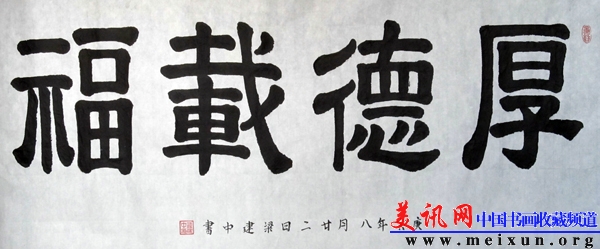 厚德載福
年八月廿二日梁建中書
美讯网 中国书画收藏频道
www.meixun.org